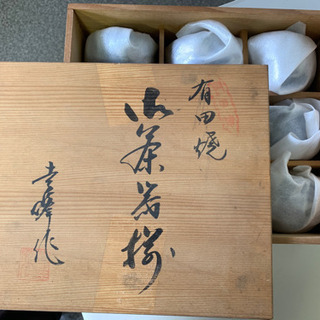 有田焼
御茶器揃
峰作